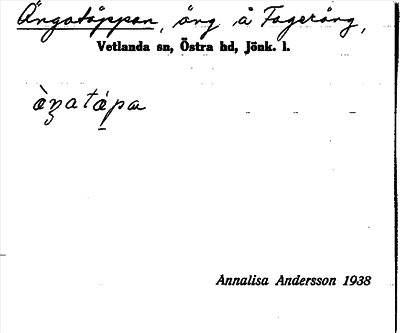 Ängatäppan, äng å Fageräng,
Vetlanda sn, Östra hd, Jönk. l.
æ̀ŋatǽpa
Annalisa Andersson 1938